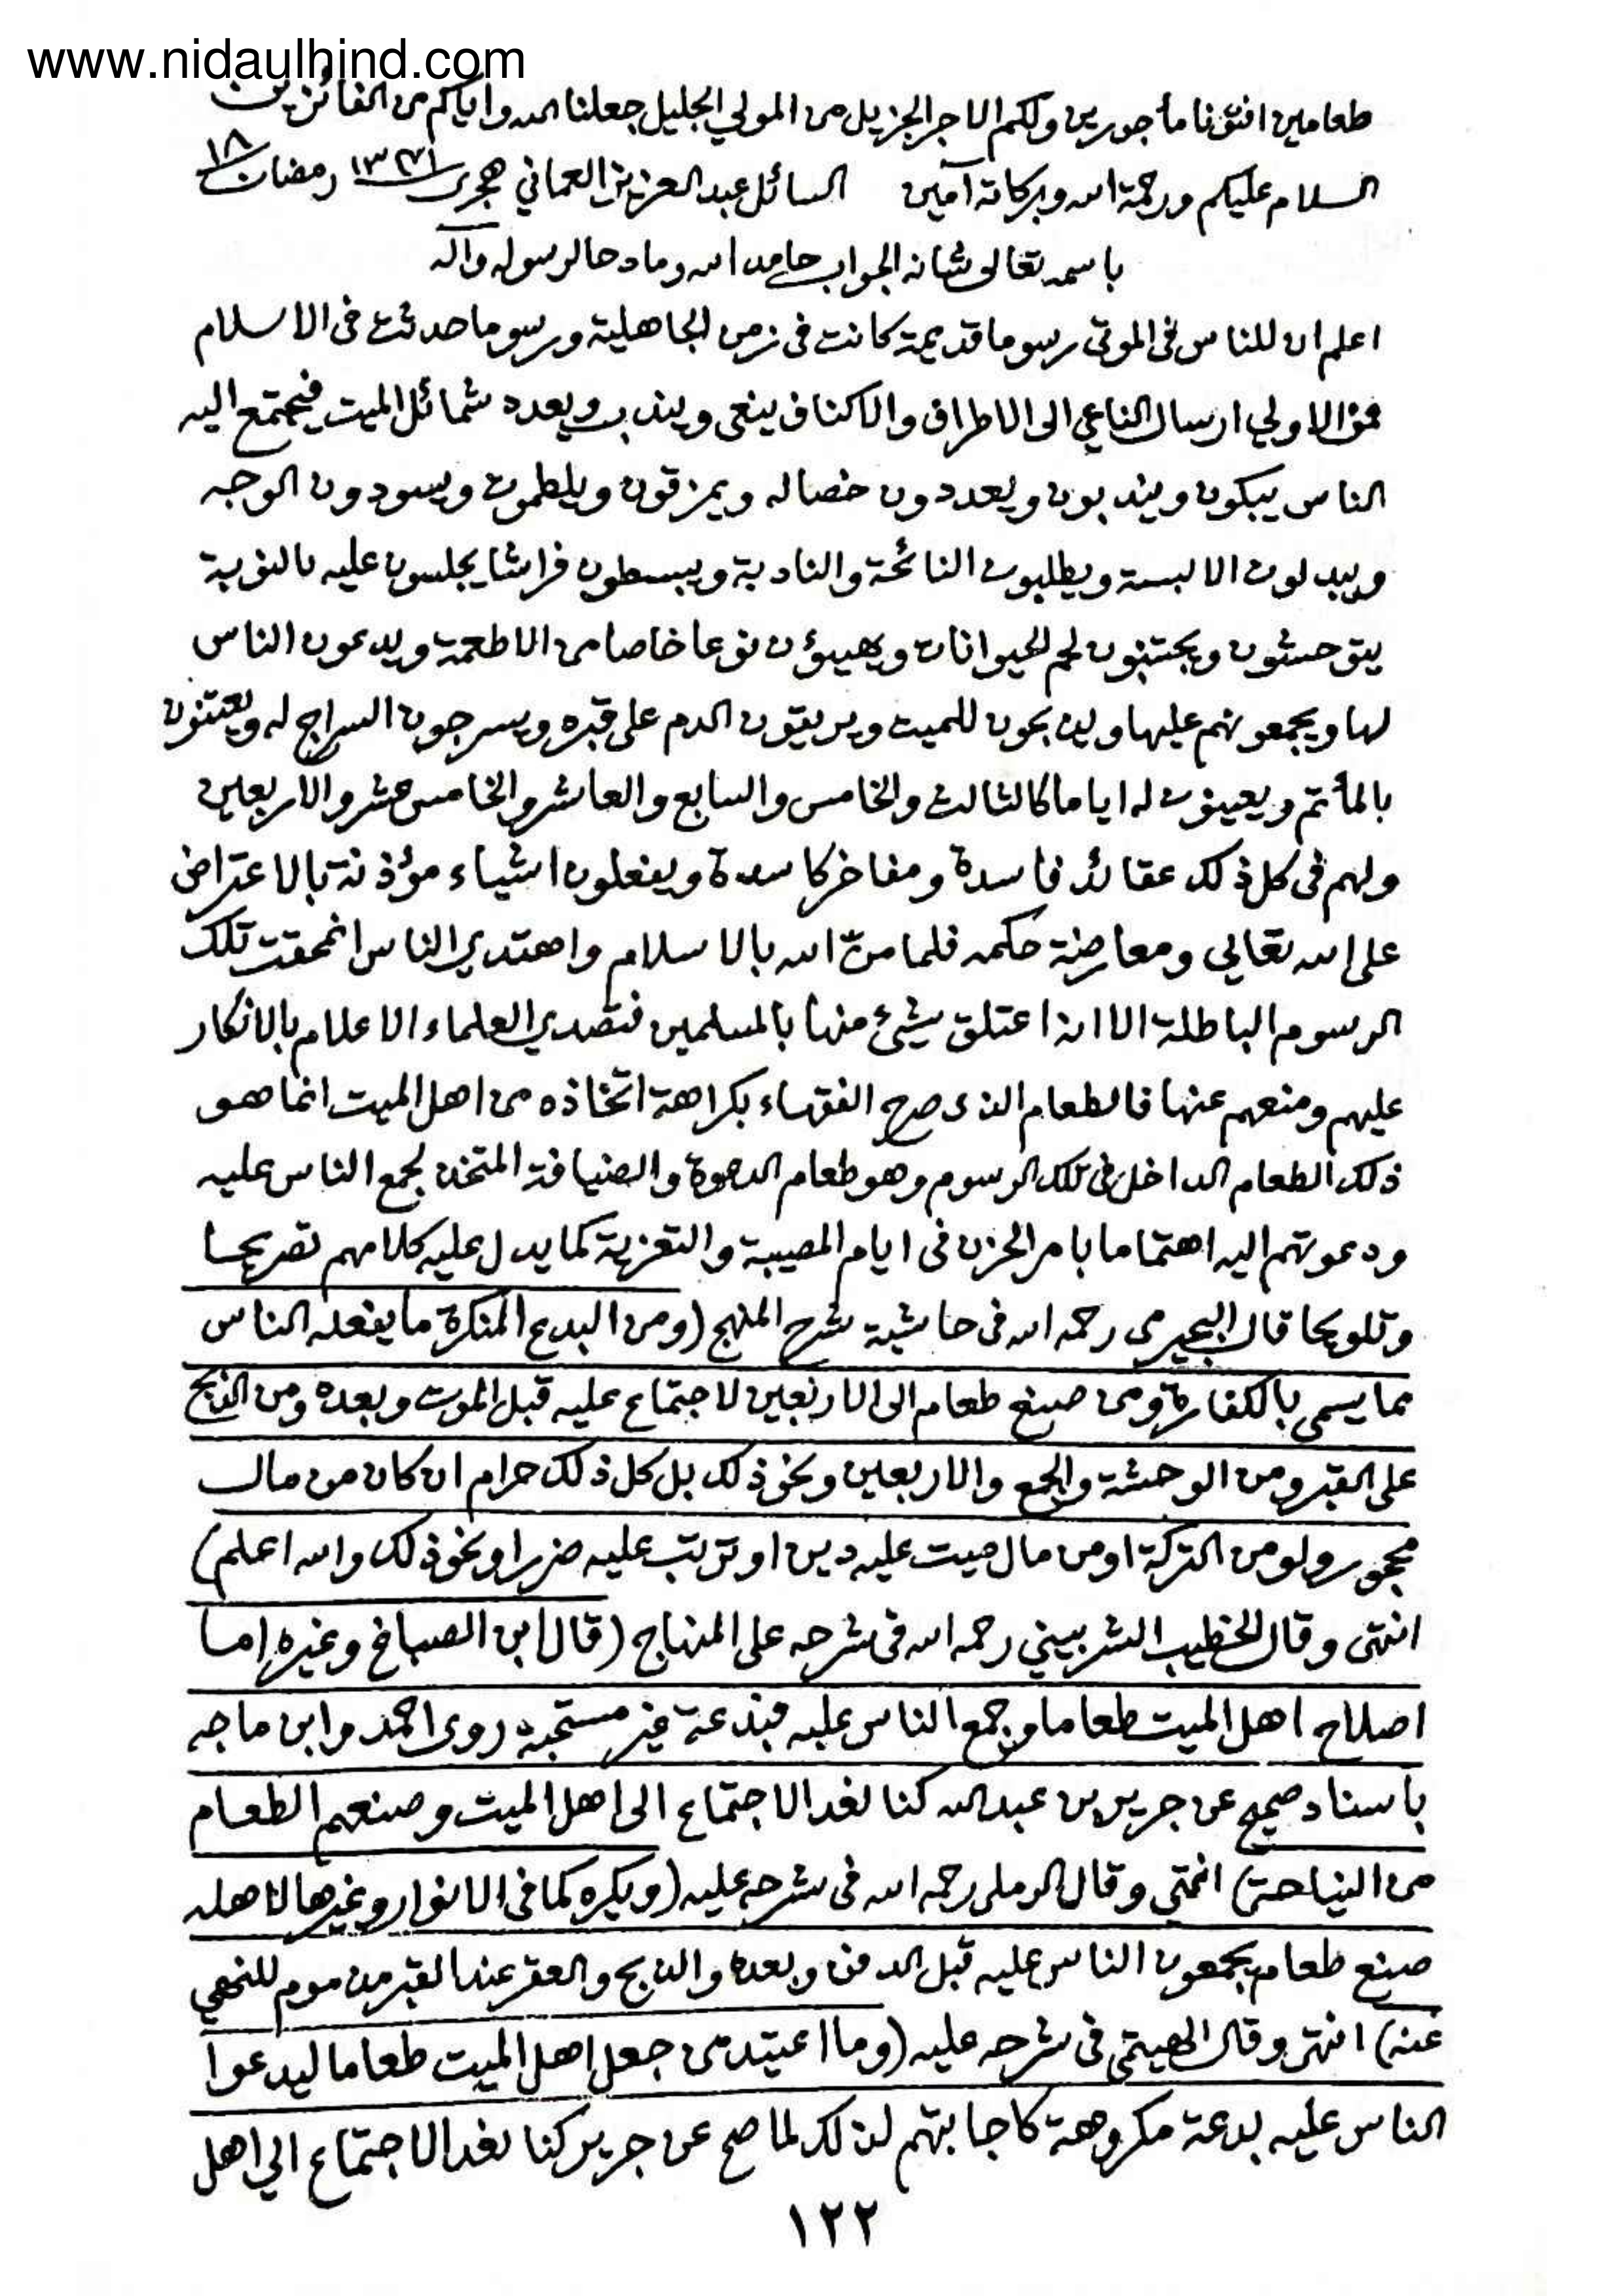 www.nidaulhind.com
طعامين افتونا مأجورين ولكم الاجر الجزيل من المولي الجليل جعلنا الله واياكم من الفائزين
السلام عليكم ورحمة الله وبركاته آمين السائل عبد العزيز العماني هجرى ١٣٧١ رمضان ١٨
باسمه تعالى شانه الجواب حامد الله ومادحا لرسوله وآله
اعلم ان للناس فى الموتى رسوما قديمة كانت فى زمن الجاهلية ورسوما حدثت فى الاسلام
فمن الاولي ارسال الناعي الى الاطراف والاكناف ينعى ويندب ويعدد شمائل الميت فيجتمع اليه
الناس يبكون ويندبون ويعددون خصاله ويمزقون ويلطمون ويسودون الوجه
ويبدلون الالبسة ويطلبون النائحة والنادبة ويبسطون فراشا يجلسون عليه بالنوبة
يتوحشون ويجتنبون لحم الحيوانات ويهيؤن نوعا خاصا من الاطعمة ويدعون الناس
لها ويجمعونهم عليها ويذبحون للميت ويريقون الدم على قبره ويسرجون السراج له ويعتنون
بالمأتم ويعينون له اياما كالثالث والخامس والسابع والعاشر والخامس عشر والاربعين
ولهم فى كل ذلك عقائد فاسدة ومفاخر كاسدة ويفعلون اشياء مؤذنة بالاعتراض
على الله تعالي ومعارضة حكمه فلما منّ الله بالاسلام واهتدي الناس انمحقت تلك
الرسوم الباطلة الا انه اعتلق شيئ منها بالمسلمين فتصدي العلماء الاعلام بالانكار
عليهم ومنعهم عنها فالطعام الذى صرح الفقهاء بكراهة اتخاذه من اهل الميت انما هو
ذلك الطعام الداخل فى تلك الرسوم وهو طعام الدعوة والضيافة المتخذ لجمع الناس عليه
ودعوتهم اليه اهتماما بامر الحزن فى ايام المصيبة والتعزية كما يدل عليه كلامهم تصريحا
وتلويحا قال البجيرمى رحمه الله فى حاشية شرح المنهج (ومن البدع المنكرة ما يفعله الناس
مما يسمى بالكفارة ومن صنع طعام الى الاربعين لاجتماع عليه قبل الموت وبعده ومن الذبح
على القبر ومن الوحشة والجمع والاربعين ونحو ذلك بل كل ذلك حرام ان كان من مال
محجور ولو من التركة او من مال ميت عليه دين او ترتب عليه ضرر او نحو ذلك والله اعلم)
انتهى وقال الخطيب الشربيني رحمه الله فى شرحه على المنهاج (قال ابن الصباغ وغيره اما
اصلاح اهل الميت طعاما وجمع الناس عليه فبدعة غير مستحبه روى احمد وابن ماجه
باسناد صحيح عن جرير بن عبد الله كنا نعد الاجتماع الى اهل الميت وصنعهم الطعام
من النياحة) انتهى وقال الرملى رحمه الله فى شرحه عليه (ويكره كما فى الانوار وغيرها لاهله
صنع طعام يجمعون الناس عليه قبل الدفن وبعده والذبح والعقر عند القبر مذموم للنهي
عنه) انتهى وقال الهيتمى فى شرحه عليه (وما اعتيد من جعل اهل الميت طعاما ليدعوا
الناس عليه بدعة مكروهة كاجابتهم لذلك لما صح عن جرير كنا نعد الاجتماع الي اهل
١٢٢